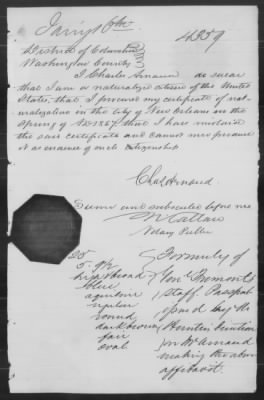 4259
District of Columbia
Washington County
I Charles Arnaud do swear
that I am a naturalized citizen of the United
States, that I procured my certificate of nat-
uralization in the City of New Orleans in the
Spring of AD 1857, that I have mislaid
the said certificate and cannot now produce
it as evidence of such citizenship
Chas Arnaud
Sworn and subscribed before me
N Callan
Notary Public
25
5.
high & broad
blue
aquiline
round
dark brown
fair
oval
Formerly of
Gen Fremonts
Staff. Passport
issued by the
on Mr Arnaud
making the above
affidavit.